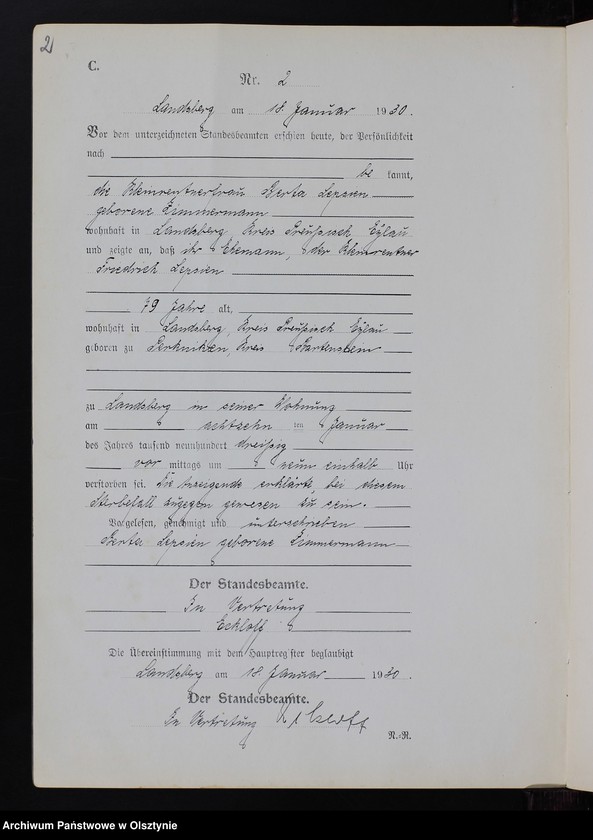 2
C.
Nr. 2
Landsberg am 18. Januar 1930.
Vor dem unterzeichneten Standesbeamten erschien heute, der Persönlichkeit
nach
be kannt,
die Kleinrentnerfrau Berta Lepsien
geborene Zimmermann
wohnhaft in Landsberg, Kreis Preußisch Eylau
und zeigte an, daß ihr Ehemann, der Kleinrentner
Friedrich Lepsien
79 Jahre alt,
wohnhaft in Landsberg, Kreis Preußisch Eylau
geboren zu Kreis Bartenstein
zu Landsberg in seiner Wohnung
am achtzehn ten Januar
des Jahres tausend neunhundert dreißig
vor mittags um neun einhalb Uhr
verstorben sei. Die Anzeigende erklärte, bei diesem
Sterbefall zugegen gewesen zu sein.
Vorgelesen, genehmigt und unterschrieben
Berta Lepsien geborene Zimmermann
Der Standesbeamte.
In Vertretung
Eckloff
Die Übereinstimmung mit dem Hauptregister beglaubigt
Landsberg am 18. Januar 1930.
Der Standesbeamte.
In Vertretung Eckloff
N.-R.
Archiwum Państwowe w Olsztynie